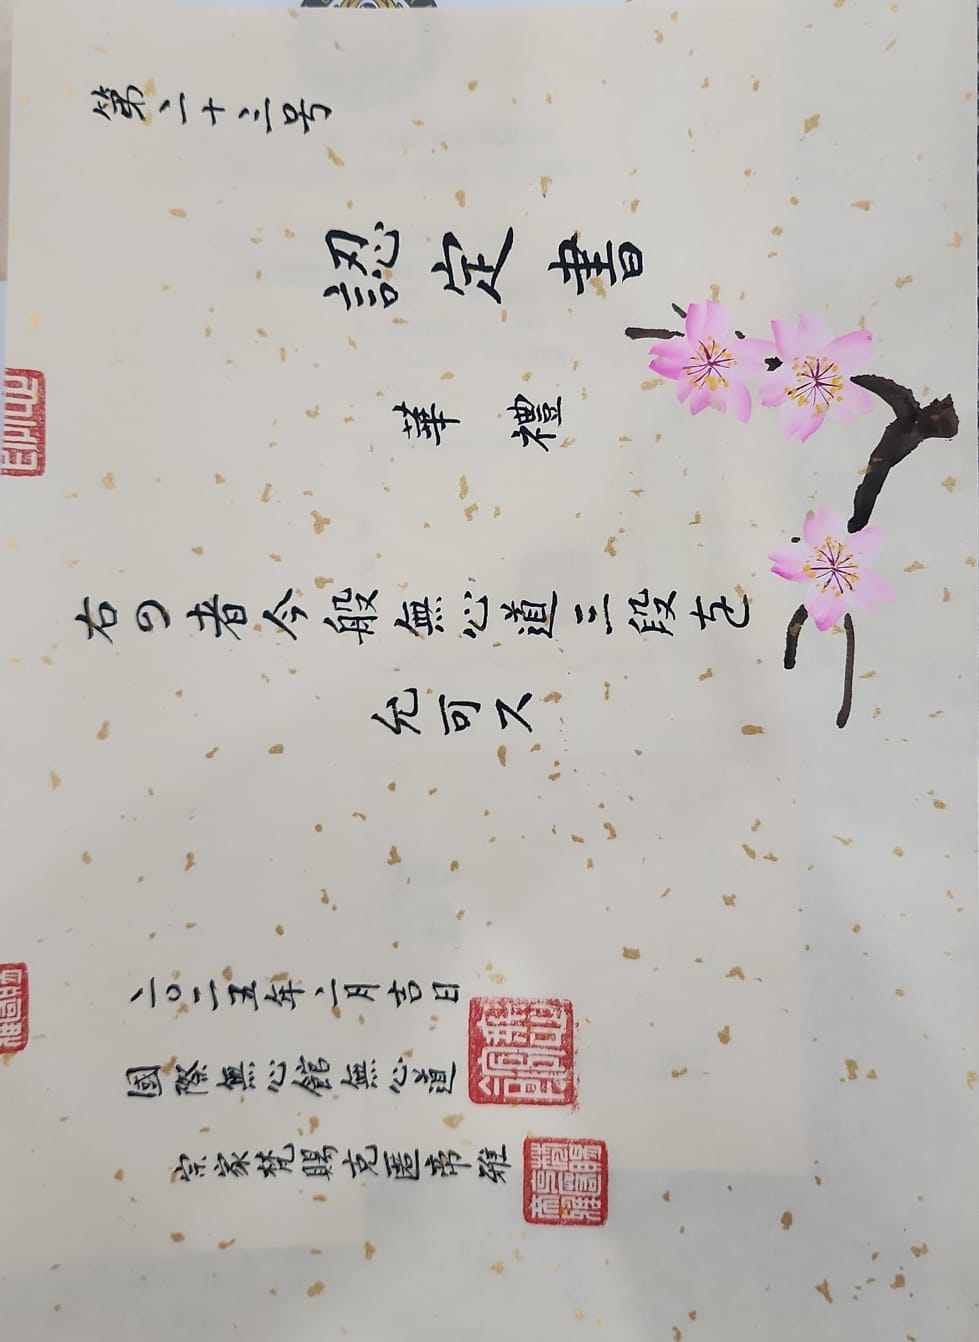 第二十三号
認定書
華禮
右の者今般無心道三段を
允可ス
二〇二五年二月吉日
國際無心館無心道
宗家梵賜克匯帝雅